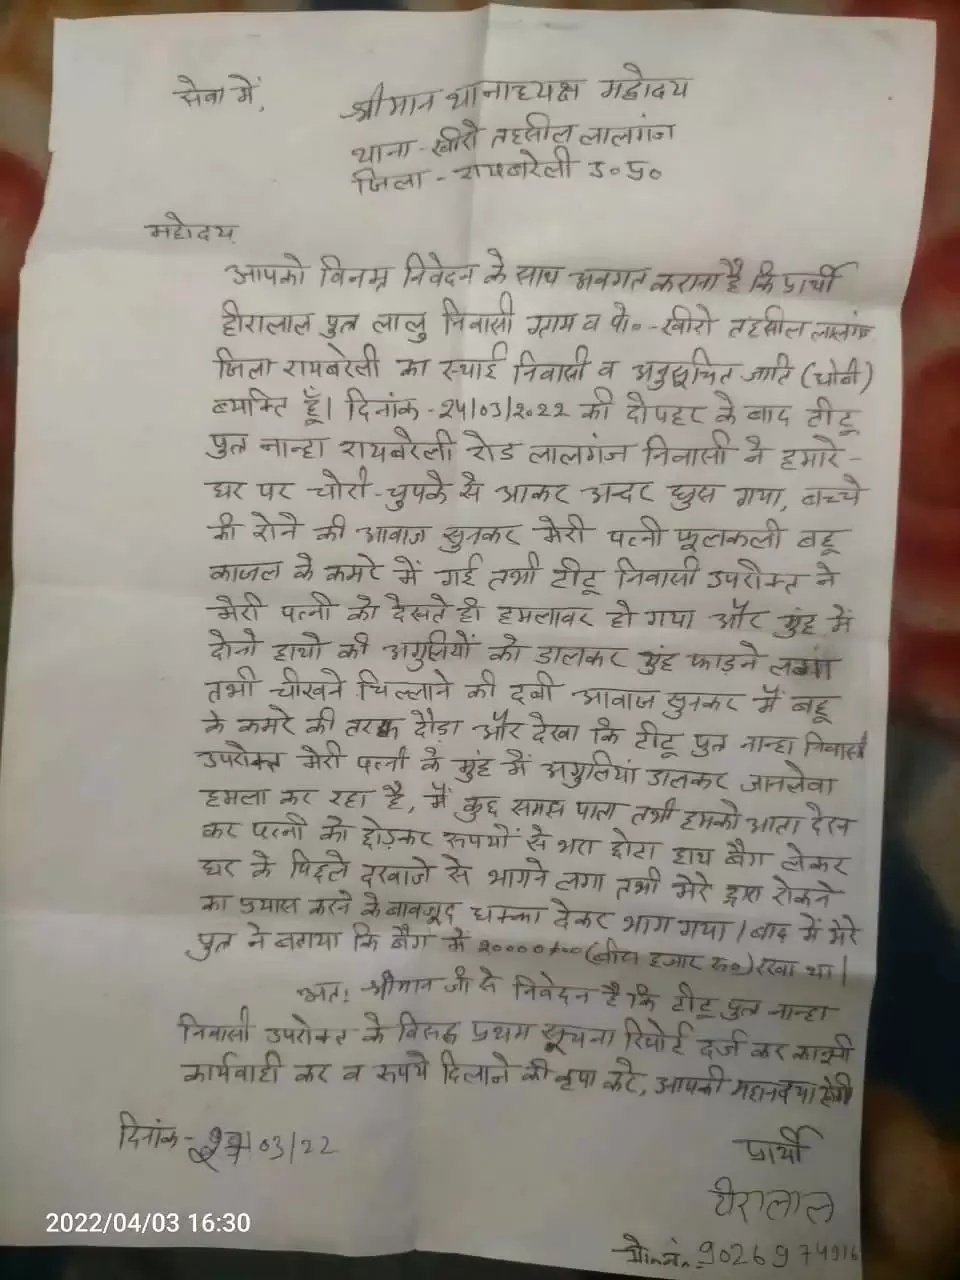 सेवा में,
श्रीमान थानाध्यक्ष महोदय
थाना - खीरो तहसील लालगंज
जिला - रायबरेली उ० प्र०
महोदय
आपको विनम्र निवेदन के साथ अवगत कराना है कि प्रार्थी
हीरालाल पुत्र लालु निवासी ग्राम व पो० - खीरो तहसील लालगंज
जिला रायबरेली का स्थाई निवासी व अनुसूचित जाति (धोबी)
व्यक्ति हूँ। दिनांक - 24/03/2022 की दोपहर के बाद टीटू
पुत्र नान्हा रायबरेली रोड लालगंज निवासी ने हमारे -
घर पर चोरी-चुपके से आकर अन्दर घुस गया, बच्चे
की रोने की आवाज सुनकर मेरी पत्नी फूलकली बहू
काजल के कमरे में गई तभी टीटू निवासी उपरोक्त ने
मेरी पत्नी को देखते ही हमलावर हो गया और मुंह में
दोनो हाथो की अगुलियों को डालकर मुंह फाड़ने लगा
तभी चीखने चिल्लाने की दबी आवाज सुनकर मैं बहू
के कमरे की तरफ दौड़ा और देखा कि टीटू पुत्र नान्हा निवासी
उपरोक्त मेरी पत्नी के मुंह में अगुलियां डालकर जानलेवा
हमला कर रहा है, मैं कुछ समझ पाता तभी हमको आता देख
कर पत्नी को छोड़कर रूपयों से भरा छोटा हाथ बैग लेकर
घर के पिछले दरवाजे से भागने लगा तभी मेरे द्वारा रोकने
का प्रयास करने के बावजूद धक्का देकर भाग गया। बाद में मेरे
पुत्र ने बताया कि बैग में (बीस हजार रू०) रखा था।
अतः श्रीमान जी से निवेदन है कि टीटू पुत्र नान्हा
निवासी उपरोक्त के विरूद्ध प्रथम सूचना रिपोर्ट दर्ज कर
कार्यवाही कर व रूपये दिलाने की कृपा करे, आपकी महानदया होगी
दिनांक - /03/22
प्रार्थी
हीरालाल
मो० नं० - 9026974916
2022/04/03 16:30